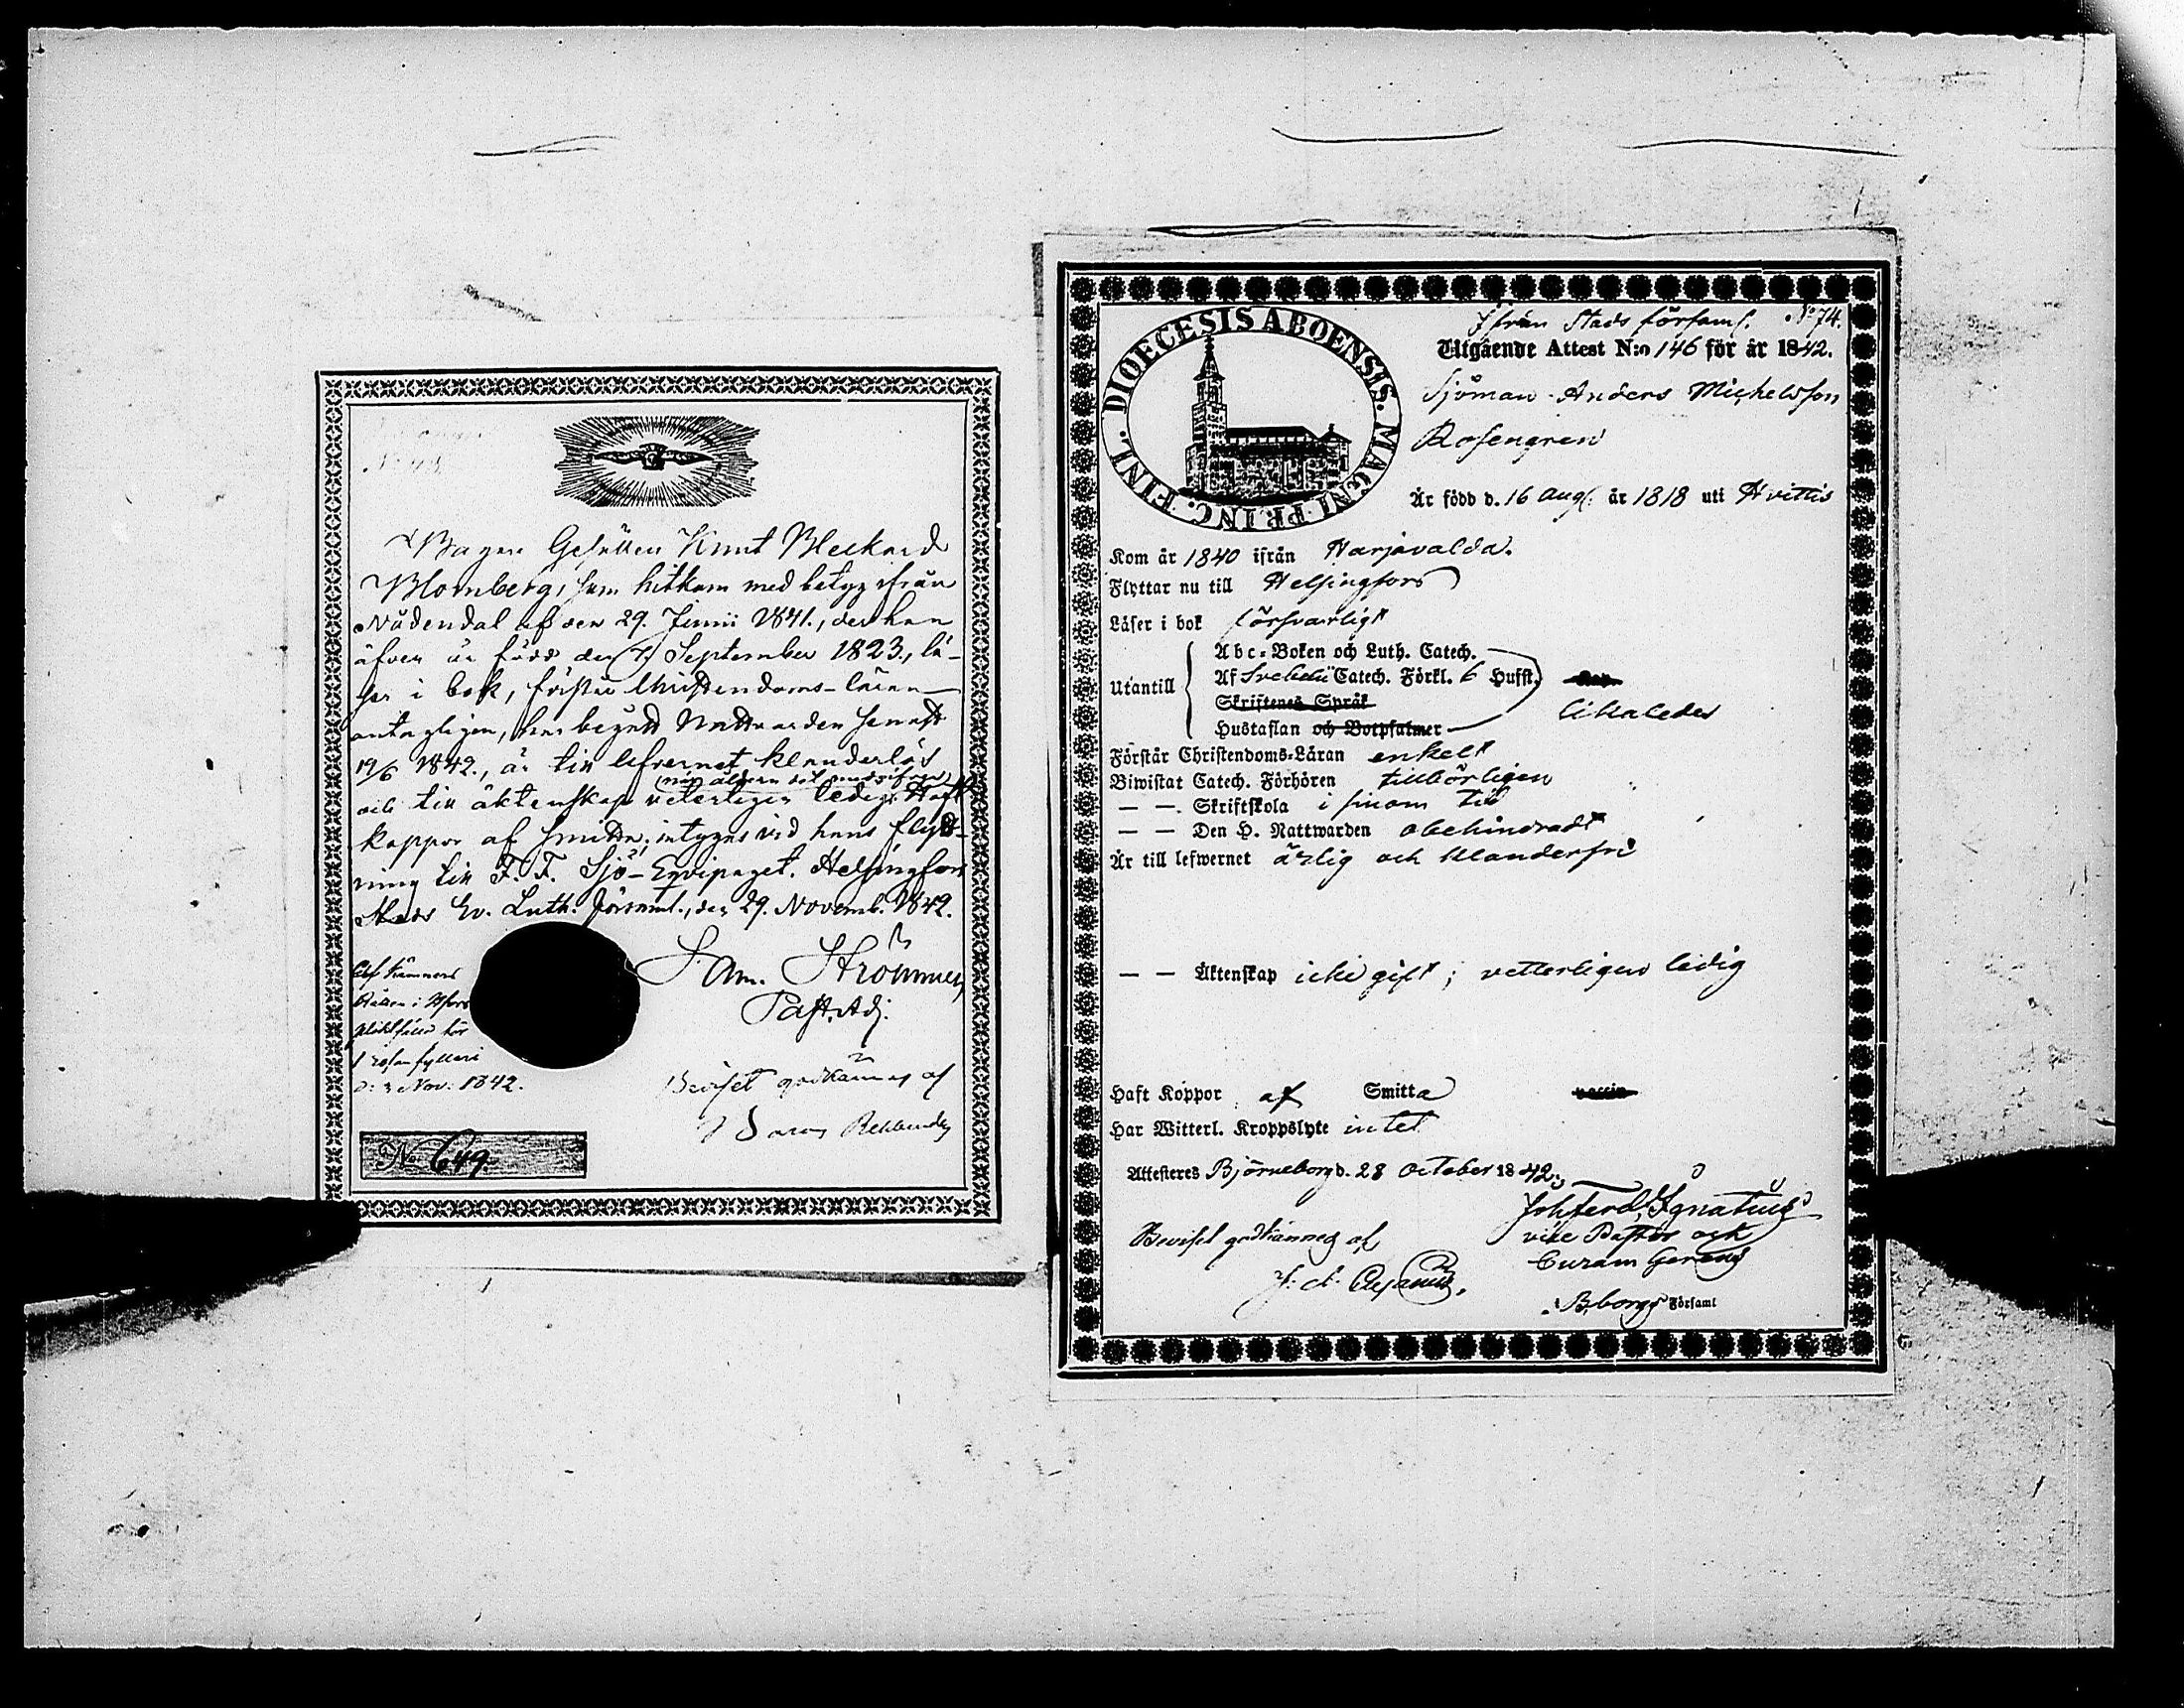 Bagare Gesällen Knut Bleckard
Blomberg, som hitkom med betyg ifrån
Nådendal af den 29. Junii 1841., der han
äfven är född den 7. September 1823., lä-
ser i bok, förstår Christendoms-läran
antagligen, har begått Nattvarden senast
19/6 1842., är till lefvernet klanderlös
och till äktenskap veterligen ledig. Haft
koppor af smitta; intygas vid hans flytt-
ning till F. F. Sjö-Eqvipaget. Helsingfors
Stads Ev. Luth. församl., den 29. Novemb. 1842.
Sam. Strömmer
Past. Adj.
Af Kämners
Rätten i Hfors
1 resan fylleri
d: 3 Nov. 1842.
Beviset godkännes af
No 649
DIOECESIS ABOENSIS. MAGNI PRINC. FINL.
Ifrån Stads församl. No 74.
Utgående Attest N:o 146 för år 1842.
Sjöman Anders Michelsson
Rosengren
Är född d. 16 Aug. år 1818 uti Hvittis
Kom år 1840 ifrån Harjavalda.
Flyttar nu till Helsingfors
Läser i bok försvarligt
Utantill
Abc-Boken och Luth. Catech.
Af Svebelii Catech. Förkl. 6 Hufst.
Skriftenes Språk
Hustaflan och Botpsalmer
likaledes
Förstår Christendoms-Läran enkelt
Biwistat Catech. Förhören tillbörligen
— — Skriftskola i sinom tid
— — Den H. Nattwarden obehindradt
Är till lefwernet ärlig och klanderfri
— — Äktenskap icke gift; vetterligen ledig
Haft Koppor af Smitta vaccin
Har Witterl. Kroppslyte intet
Attesteres Björneborg d. 28 October 1842.
Joh Ferd. Ignatius
vice Pastor och
Curam Gerens
B,borgs Församl
Beviset godkännes af